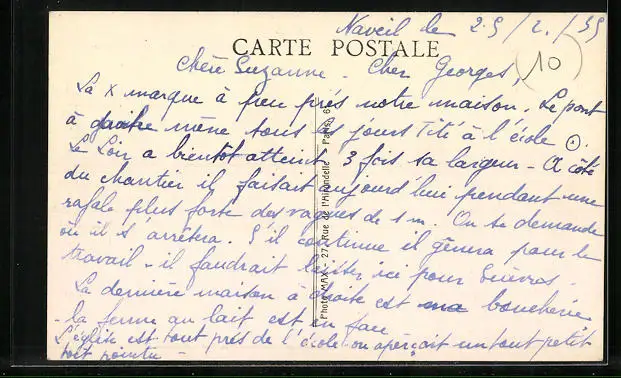 Naveil le 25/2/39
CARTE POSTALE
10
Chère Suzanne. Cher Georges,
La x marque à peu près notre maison. Le pont
à droite mène tous les jours Titi à l'école ⊙.
Le Loir a bientôt atteint 3 fois sa largeur - A côté
du chantier il faisait aujourd'hui pendant une
rafale plus forte des vagues de 1 m. On se demande
où il s'arrêtera. S'il continue il gênera pour le
travail - il faudrait laisser ici pour
La dernière maison à droite est ma boucherie
- la ferme au lait est en face
L'église est tout près de l'école on aperçoit un tout petit
toit pointu -
Photo MAX - 27, Rue de l'Hirondelle - Paris 6